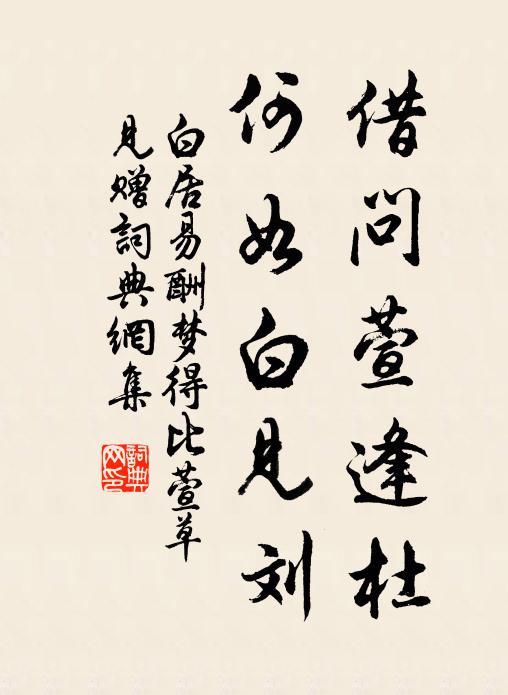 借问萱逢杜
何如白见刘
白居易酬梦得比萱草
见赠詞典網集
詞典
网印